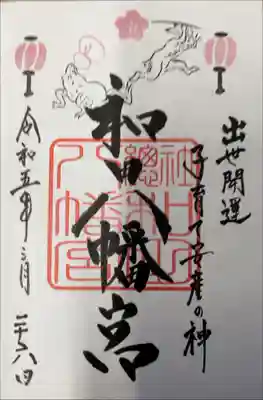 出世開運
子育て安産の神
和田八幡宮
令和五年三月二十六日